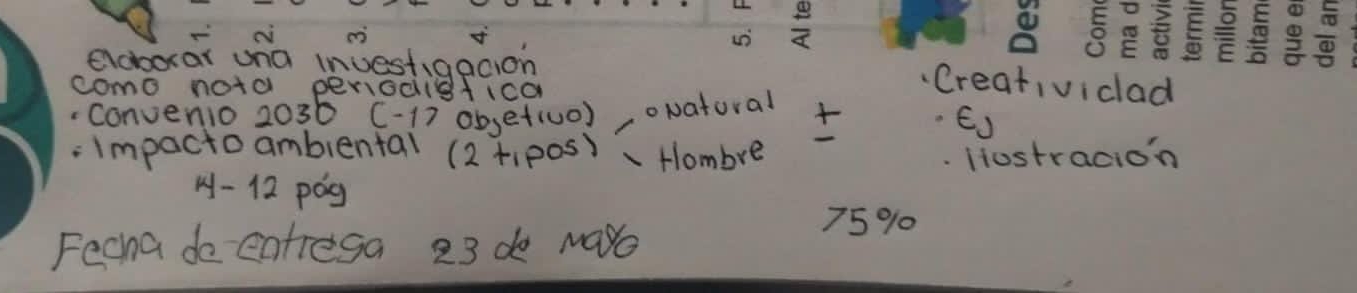 1.
2.
3.
4.
5. F
Al te
Des
Como
ma d
activi
termin
millon
bitam
que e
del am
Elaborar una investigación
como nota periodistica
• Convenio 2030 (-17 objetivo)
• Impacto ambiental (2 tipos)
o Natural
Hombre
+
-
4-12 pág
Fecha de entrega 23 de Mayo
75%
• Creatividad
• Ej
• Ilustración